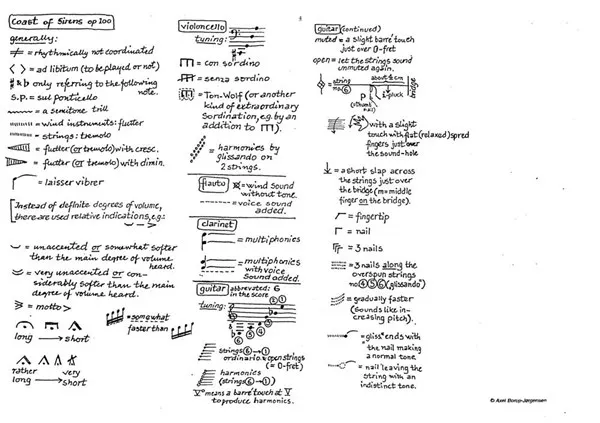 Coast of Sirens op 100
generally:
= rhythmically not coordinated
< > = ad libitum (to be played or not)
♯ & ♭ only referring to the following
note.
s.p. = sul ponticello
= a semitone trill
= wind instruments: flutter
= strings: tremolo
= flutter (or tremolo) with cresc.
= flutter (or tremolo) with dimin.
= laisser vibrer
Instead of definite degrees of volume,
there are used relative indications, e.g.:
= unaccented or somewhat softer
than the main degree of volume
heard.
= very unaccented or con-
siderably softer than the main
degree of volume heard.
= molto >
long → short
= somewhat
faster than
rather very
long → short
violoncello
tuning:
= con sordino
= senza sordino
= Ton-Wolf (or another
kind of extraordinary
Sordination, e.g. by an
addition to
= harmonies by
glissando on
2 strings.
flauto
= wind sound
without tone.
= voice sound
added.
clarinet
= multiphonics
= multiphonics
with voice
Sound added.
guitar abbrevated: G
in the score
tuning:
③ ② ①
⑥ ⑤ ④
strings ⑥ → ①
ordinario & open strings
(= 0-fret)
harmonics
(strings ⑥ → ①)
V° means a barré touch at V
to produce harmonics.
guitar (continued)
muted = a slight barré touch
just over 0-fret
open = let the strings sound
unmuted again.
= string
no ⑥
about ½ cm
bridge
p
(=thumb
nail)
i-pluck
with a slight
touch with flat (relaxed) spred
fingers just over
the sound-hole
= a short slap across
the strings just over
the bridge (m = middle
finger on the bridge).
= fingertip
= nail
= 3 nails
= 3 nails along the
overspun strings
no ④⑤⑥ (glissando)
= gradually faster
(sounds like in-
creasing pitch).
= gliss. ends with
the nail making
a normal tone
= nail leaving the
string with an
indistinct tone.
© Axel Borup-Jørgensen